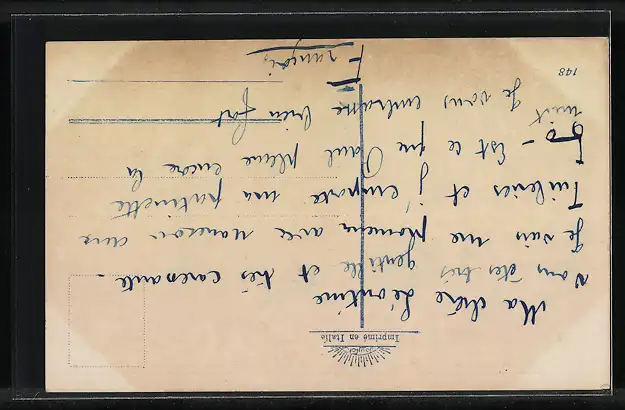 Imprimé en Italie
Ma chère Léontine
Vous êtes très gentille et très caressante.
Je vais me promener avec maman aux
Tuileries et j'emporte ma patinette
Est ce que Paul pleure encore la
nuit
Je vous embrasse bien fort
François
148